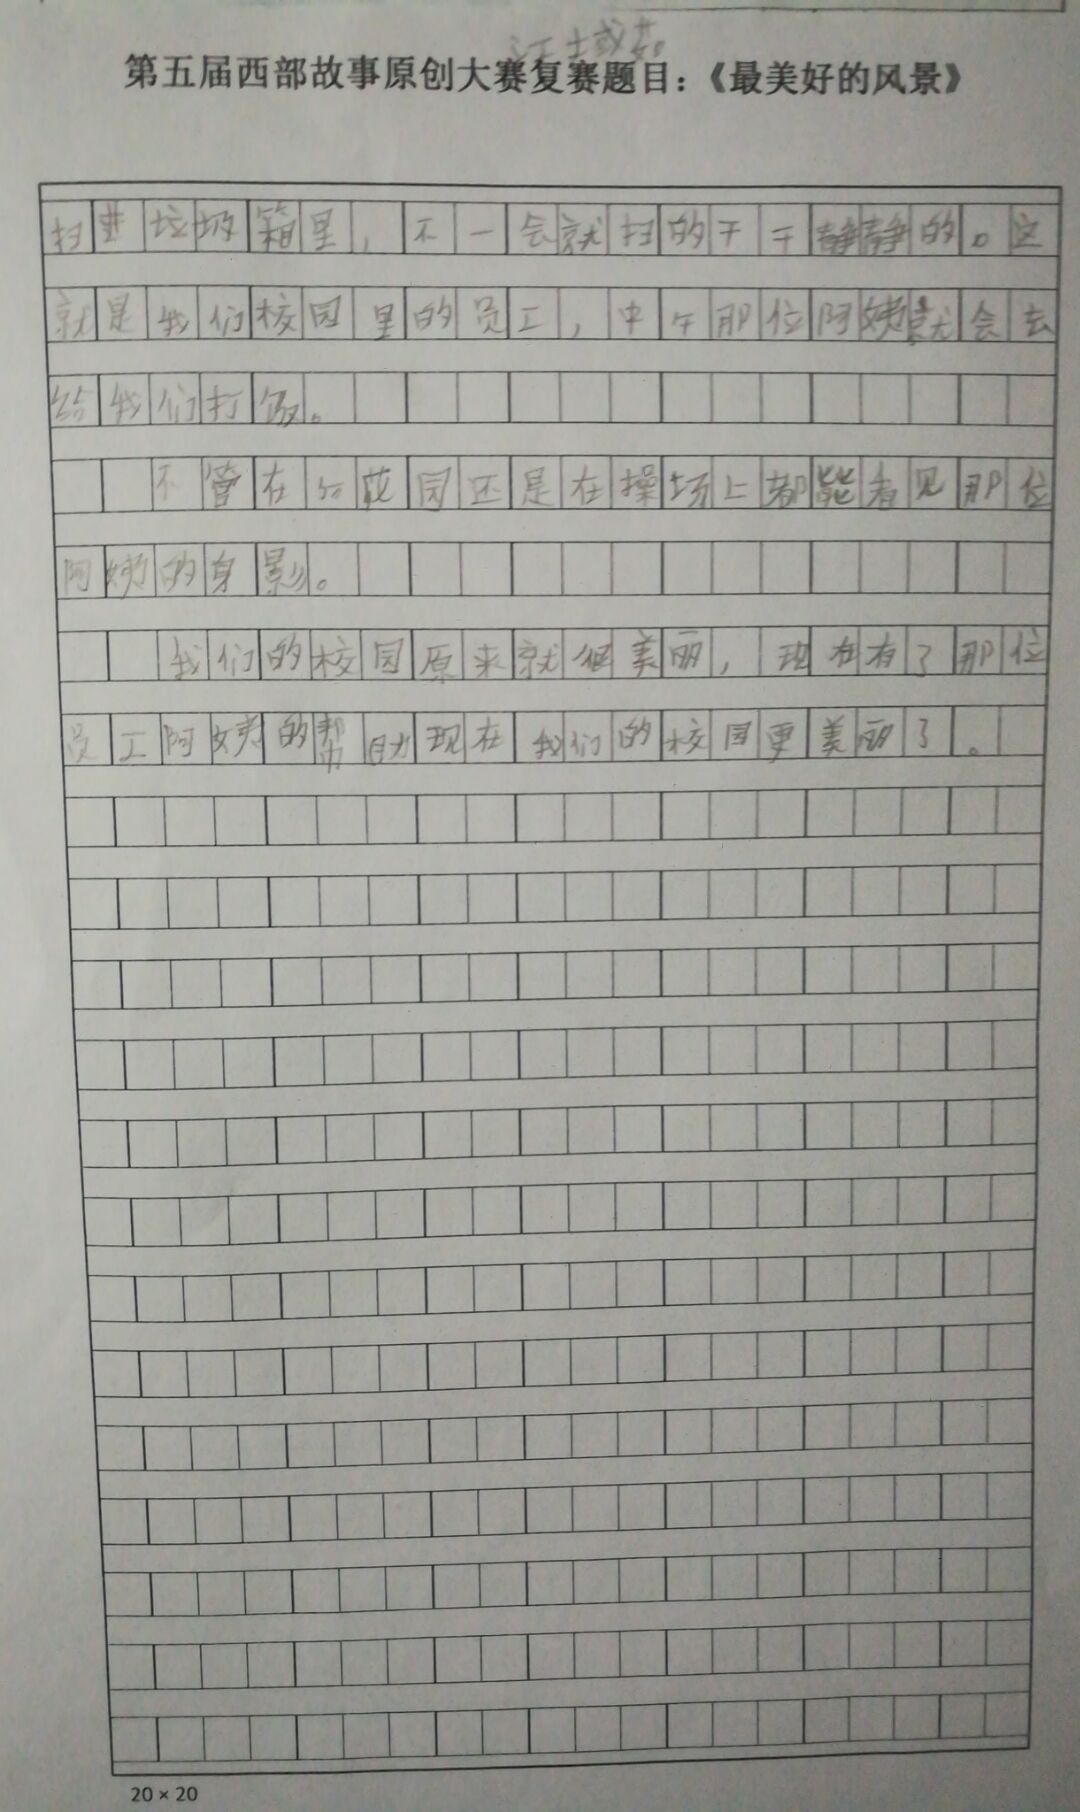 第五届西部故事原创大赛复赛题目：《最美好的风景》
扫进垃圾箱里，不一会就扫的干干静静的。这
就是我们校园里的员工，中午那位阿姨就会去
给我们打饭。
不管在花园还是在操场上都能看见那位
阿姨的身影。
我们的校园原来就很美丽，现在有了那位
员工阿姨的帮助现在我们的校园更美丽了。
20×20